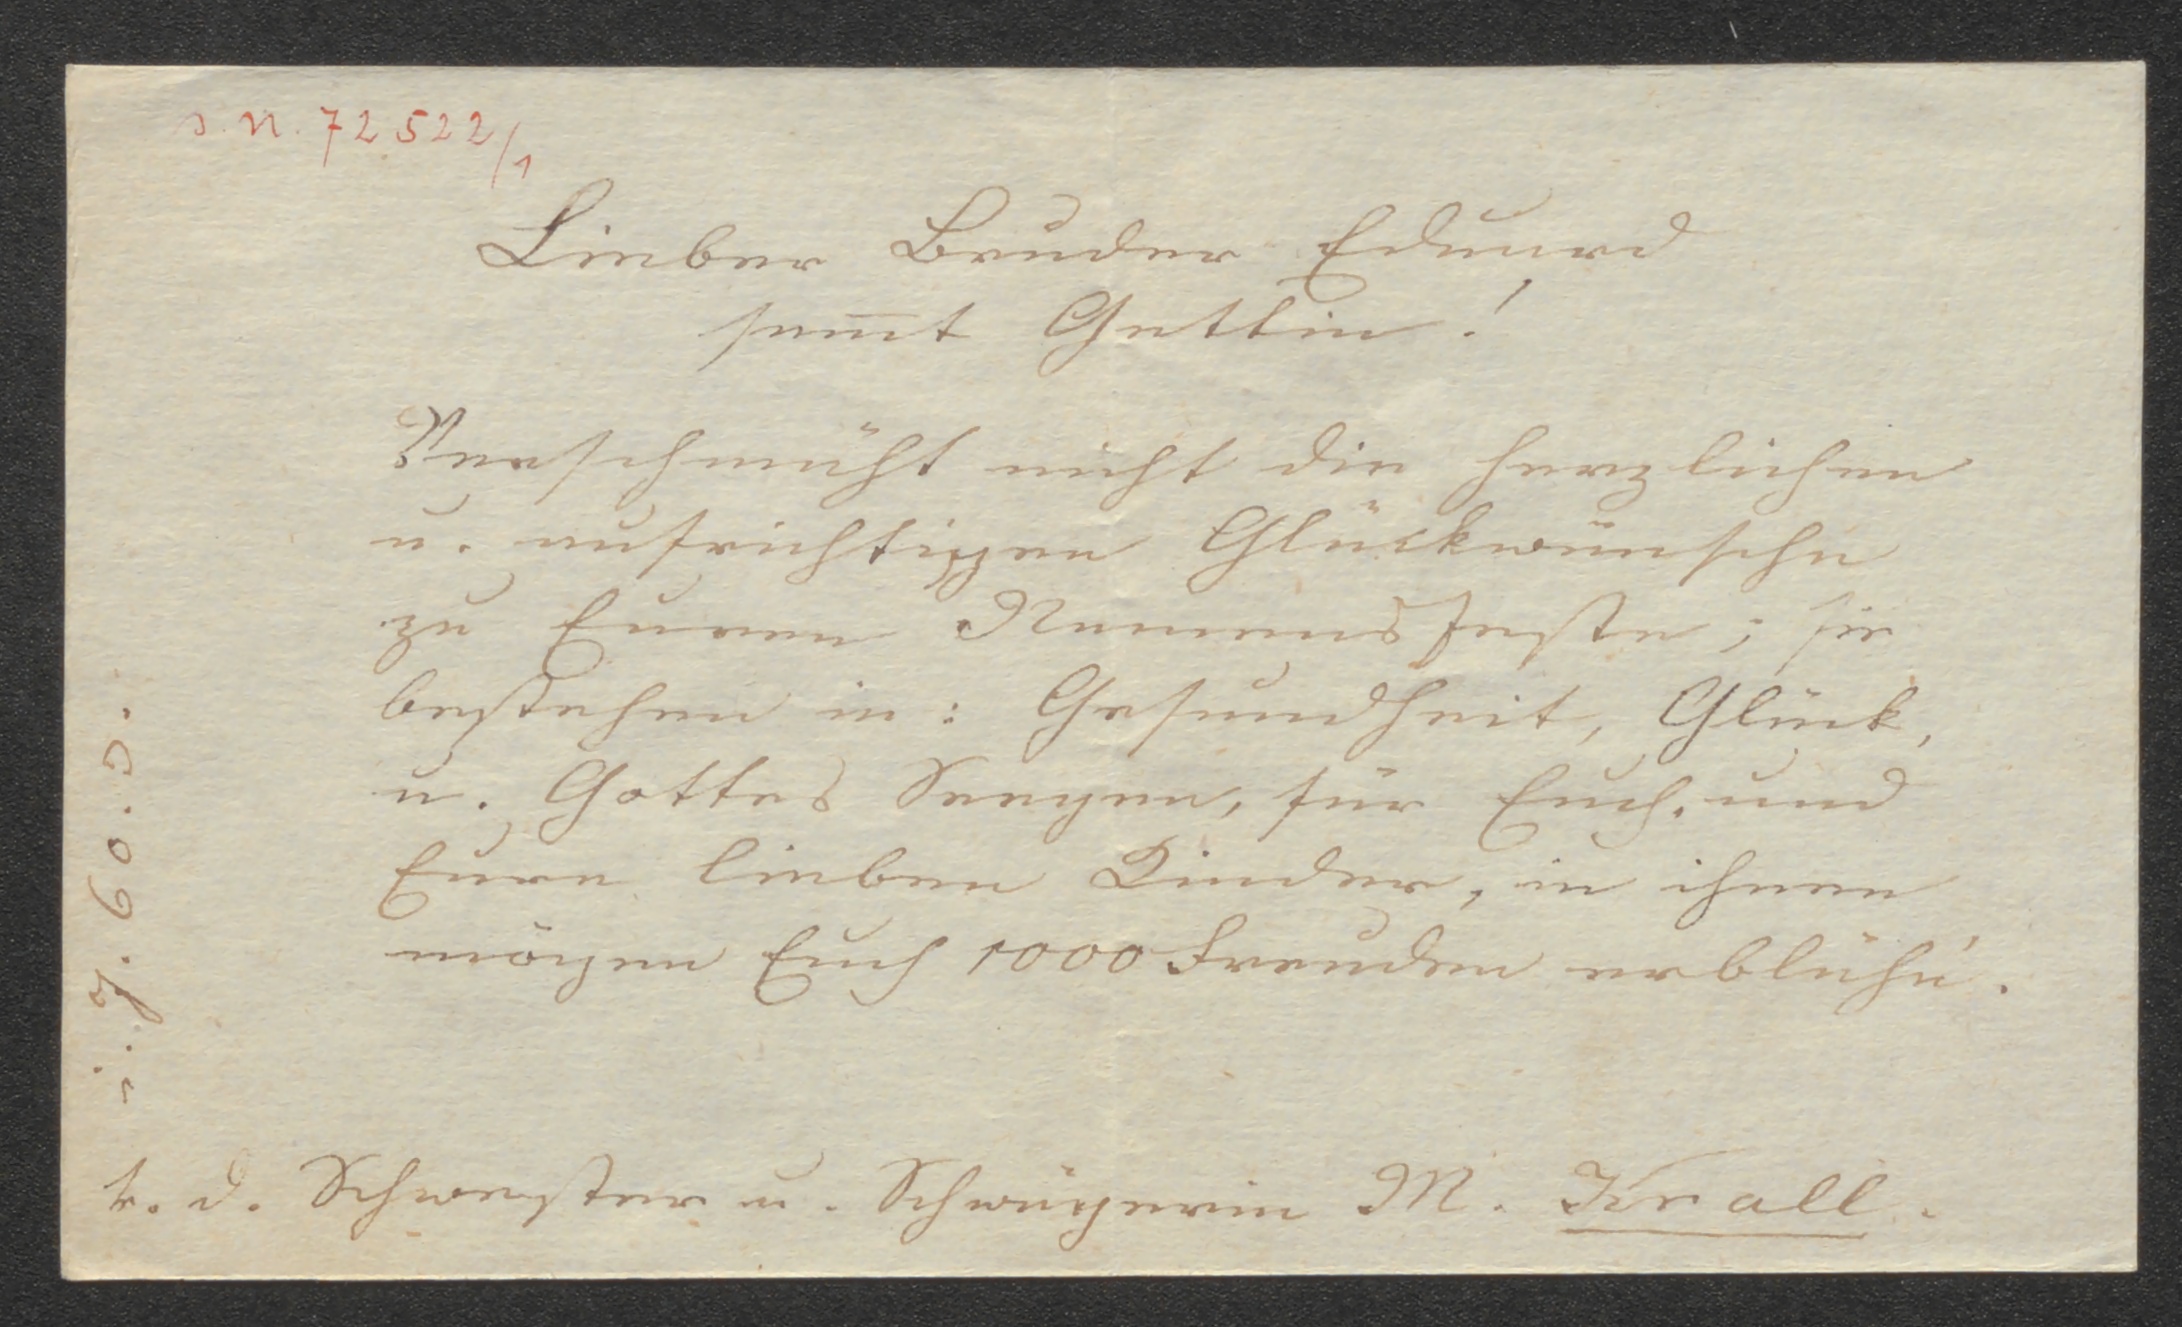 J. N. 72522/1
Lieber Bruder Eduard
sam̄t Gattin!
Verschmäht nicht die herzlichen
u. aufrichtigen Glückwünsche
zu Euren Namensfeste; sie
bestehen in: Gesundheit, Glück,
u. Gottes Seegen, für Euch, und
Eure lieben Kinder, in ihnen
mögen Euch 1000 Freuden erblüh'n.
d. Schwester u. Schwägerin M. Krall.